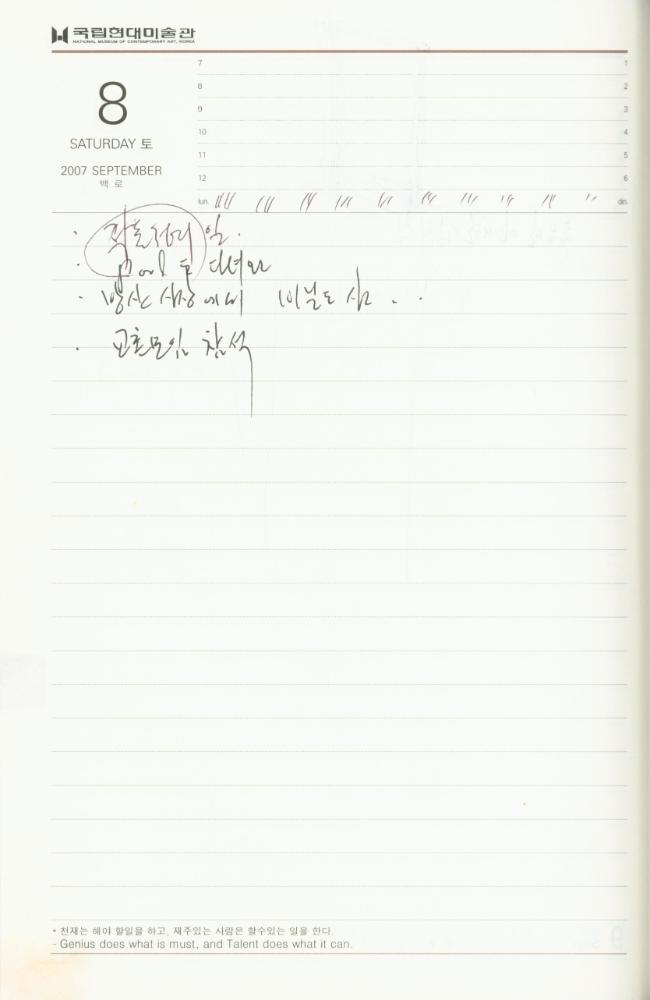 국립현대미술관
NATIONAL MUSEUM OF CONTEMPORARY ART, KOREA
8
SATURDAY 토
2007 SEPTEMBER
백 로
7 1
8 2
9 3
10 4
11 5
12 6
lun. din.
· 일.
· pool 다녀와
· 방산 시장에서 비닐도 삼..
· 모임 참석
* 천재는 해야 할일을 하고, 재주있는 사람은 할수있는 일을 한다.
- Genius does what is must, and Talent does what it can.